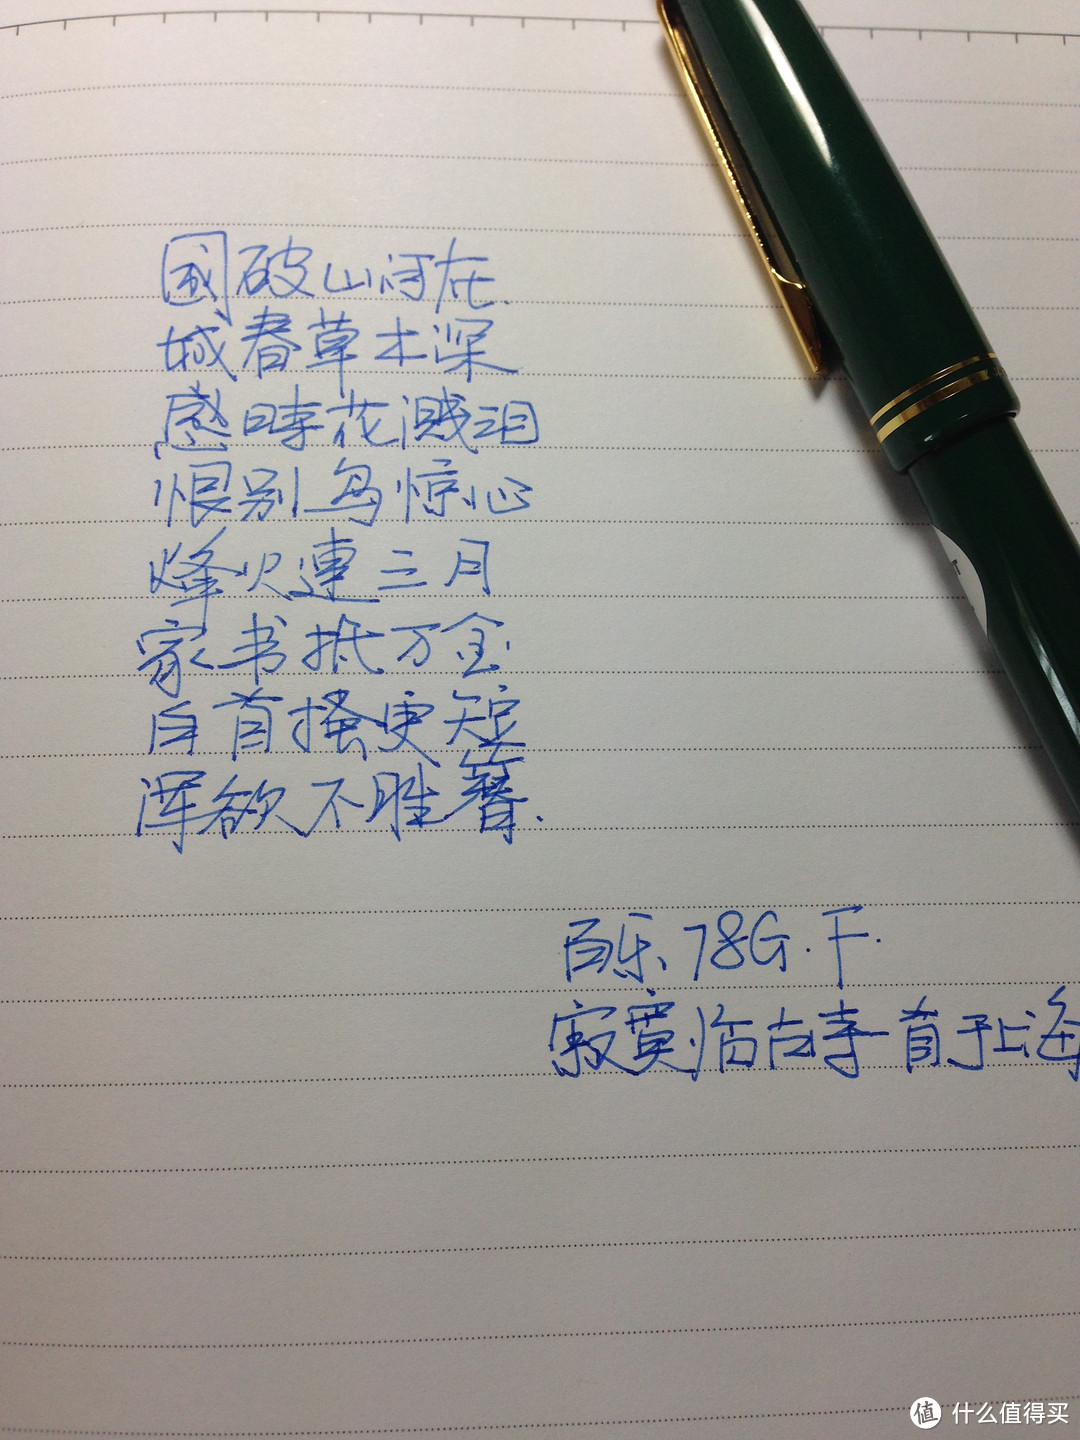 國破山河在.
城春草木深
感時花溅泪
恨别鸟惊心
烽火連三月
家书抵万金.
白首搔更短
浑欲不胜簪.
百乐78G.F.
寂寞临古寺首于上海
值 什么值得买